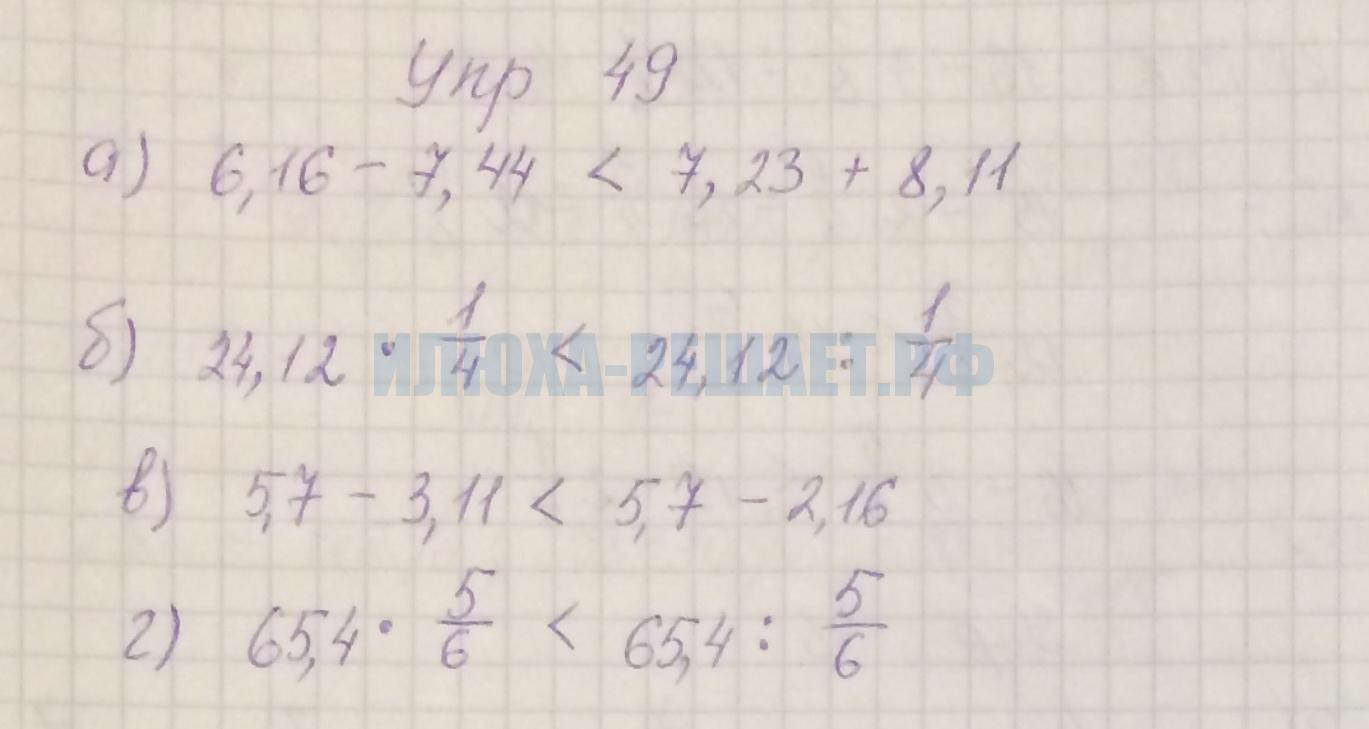 Упр 49
а) 6,16 - 7,44 < 7,23 + 8,11
б) 24,12 · 1/4 < 24,12 : 1/4
ИЛЮХА-РЕШАЕТ.РФ
в) 5,7 - 3,11 < 5,7 - 2,16
г) 65,4 · 5/6 < 65,4 : 5/6